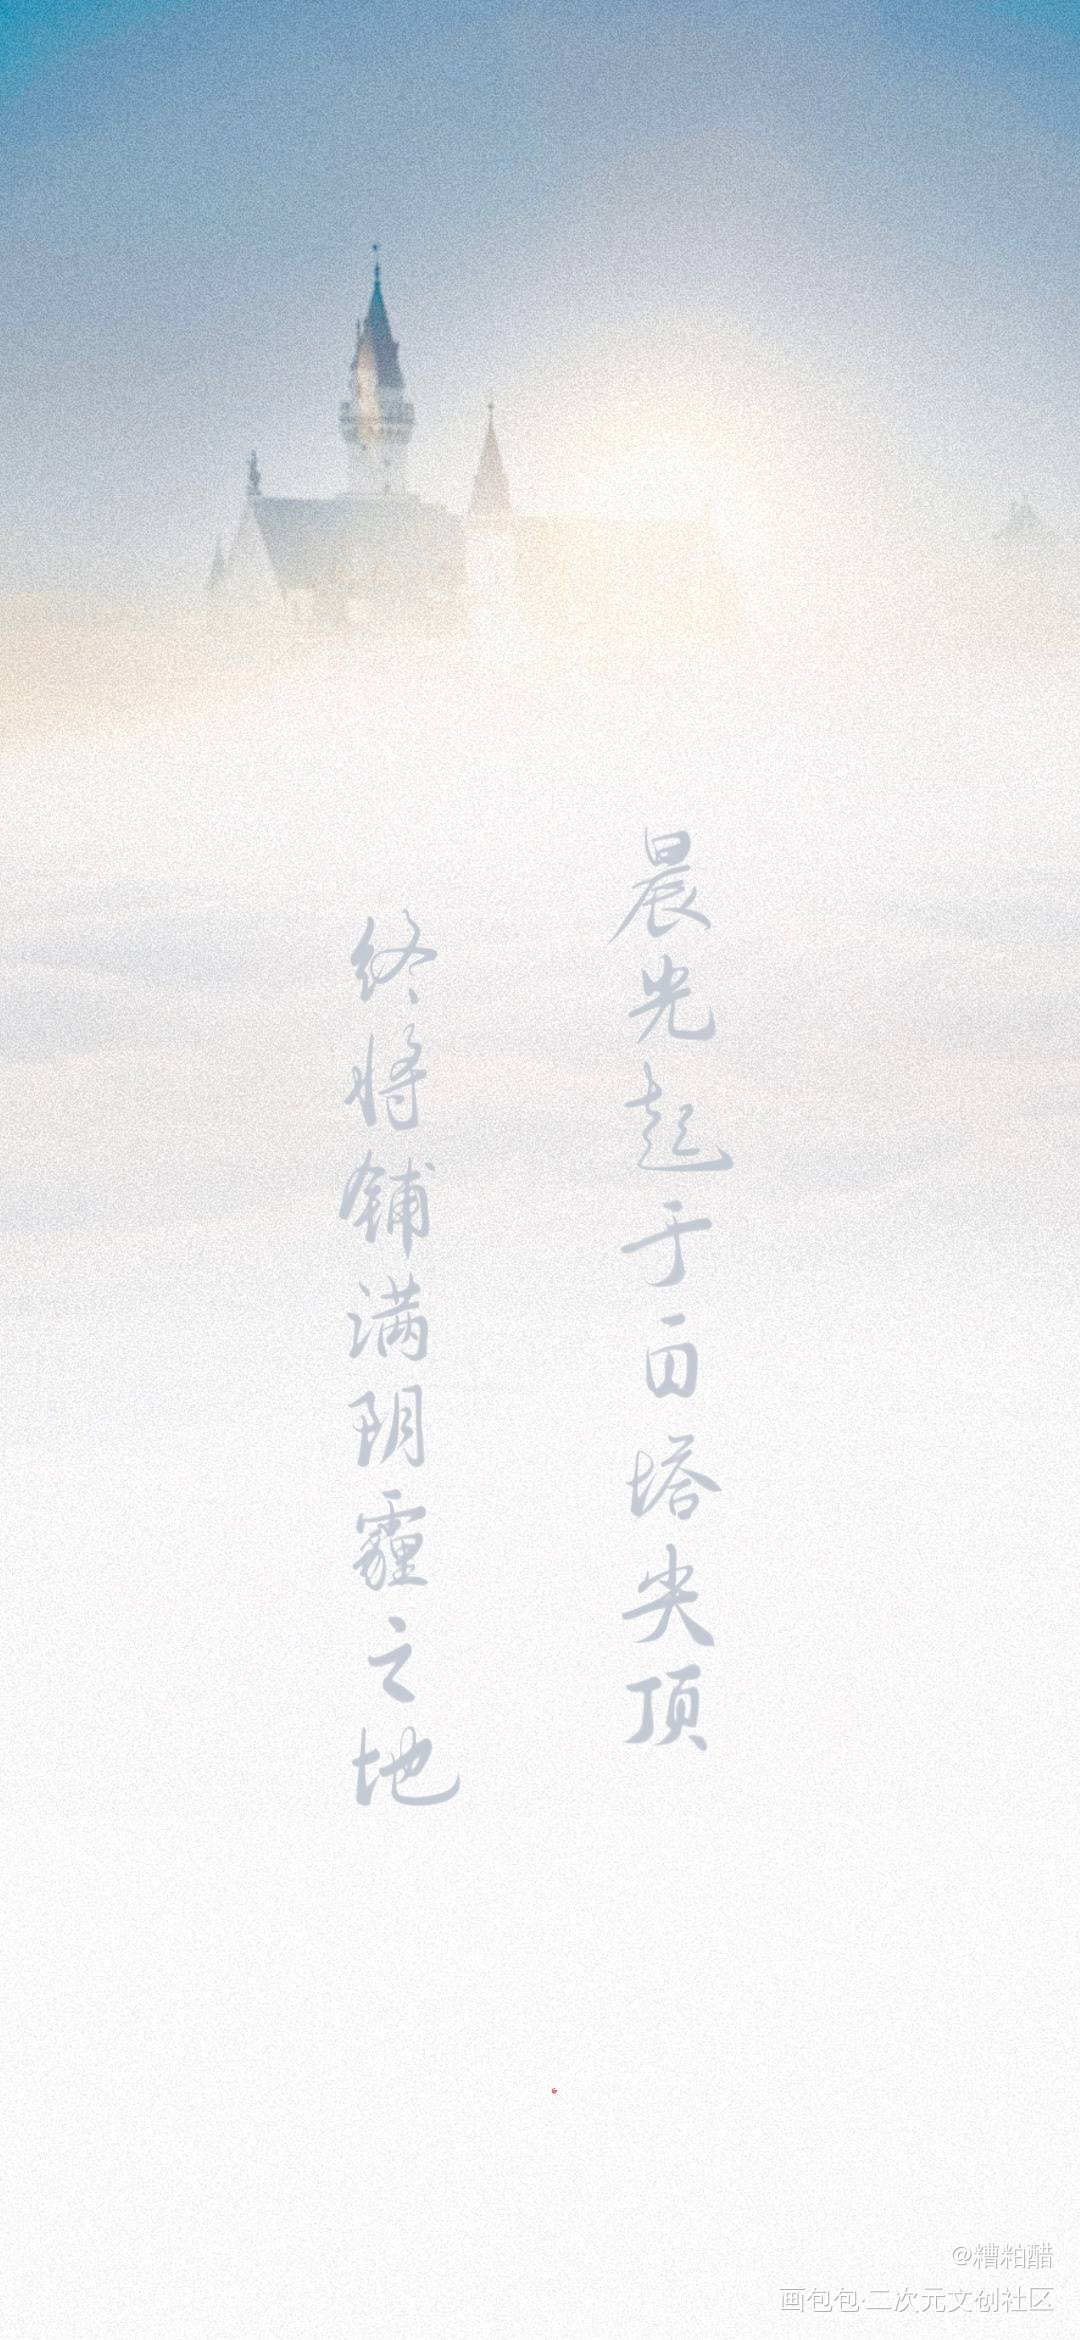 晨光起于白塔尖顶
终将铺满阴霾之地
@糟粕醋
画包包·二次元文创社区